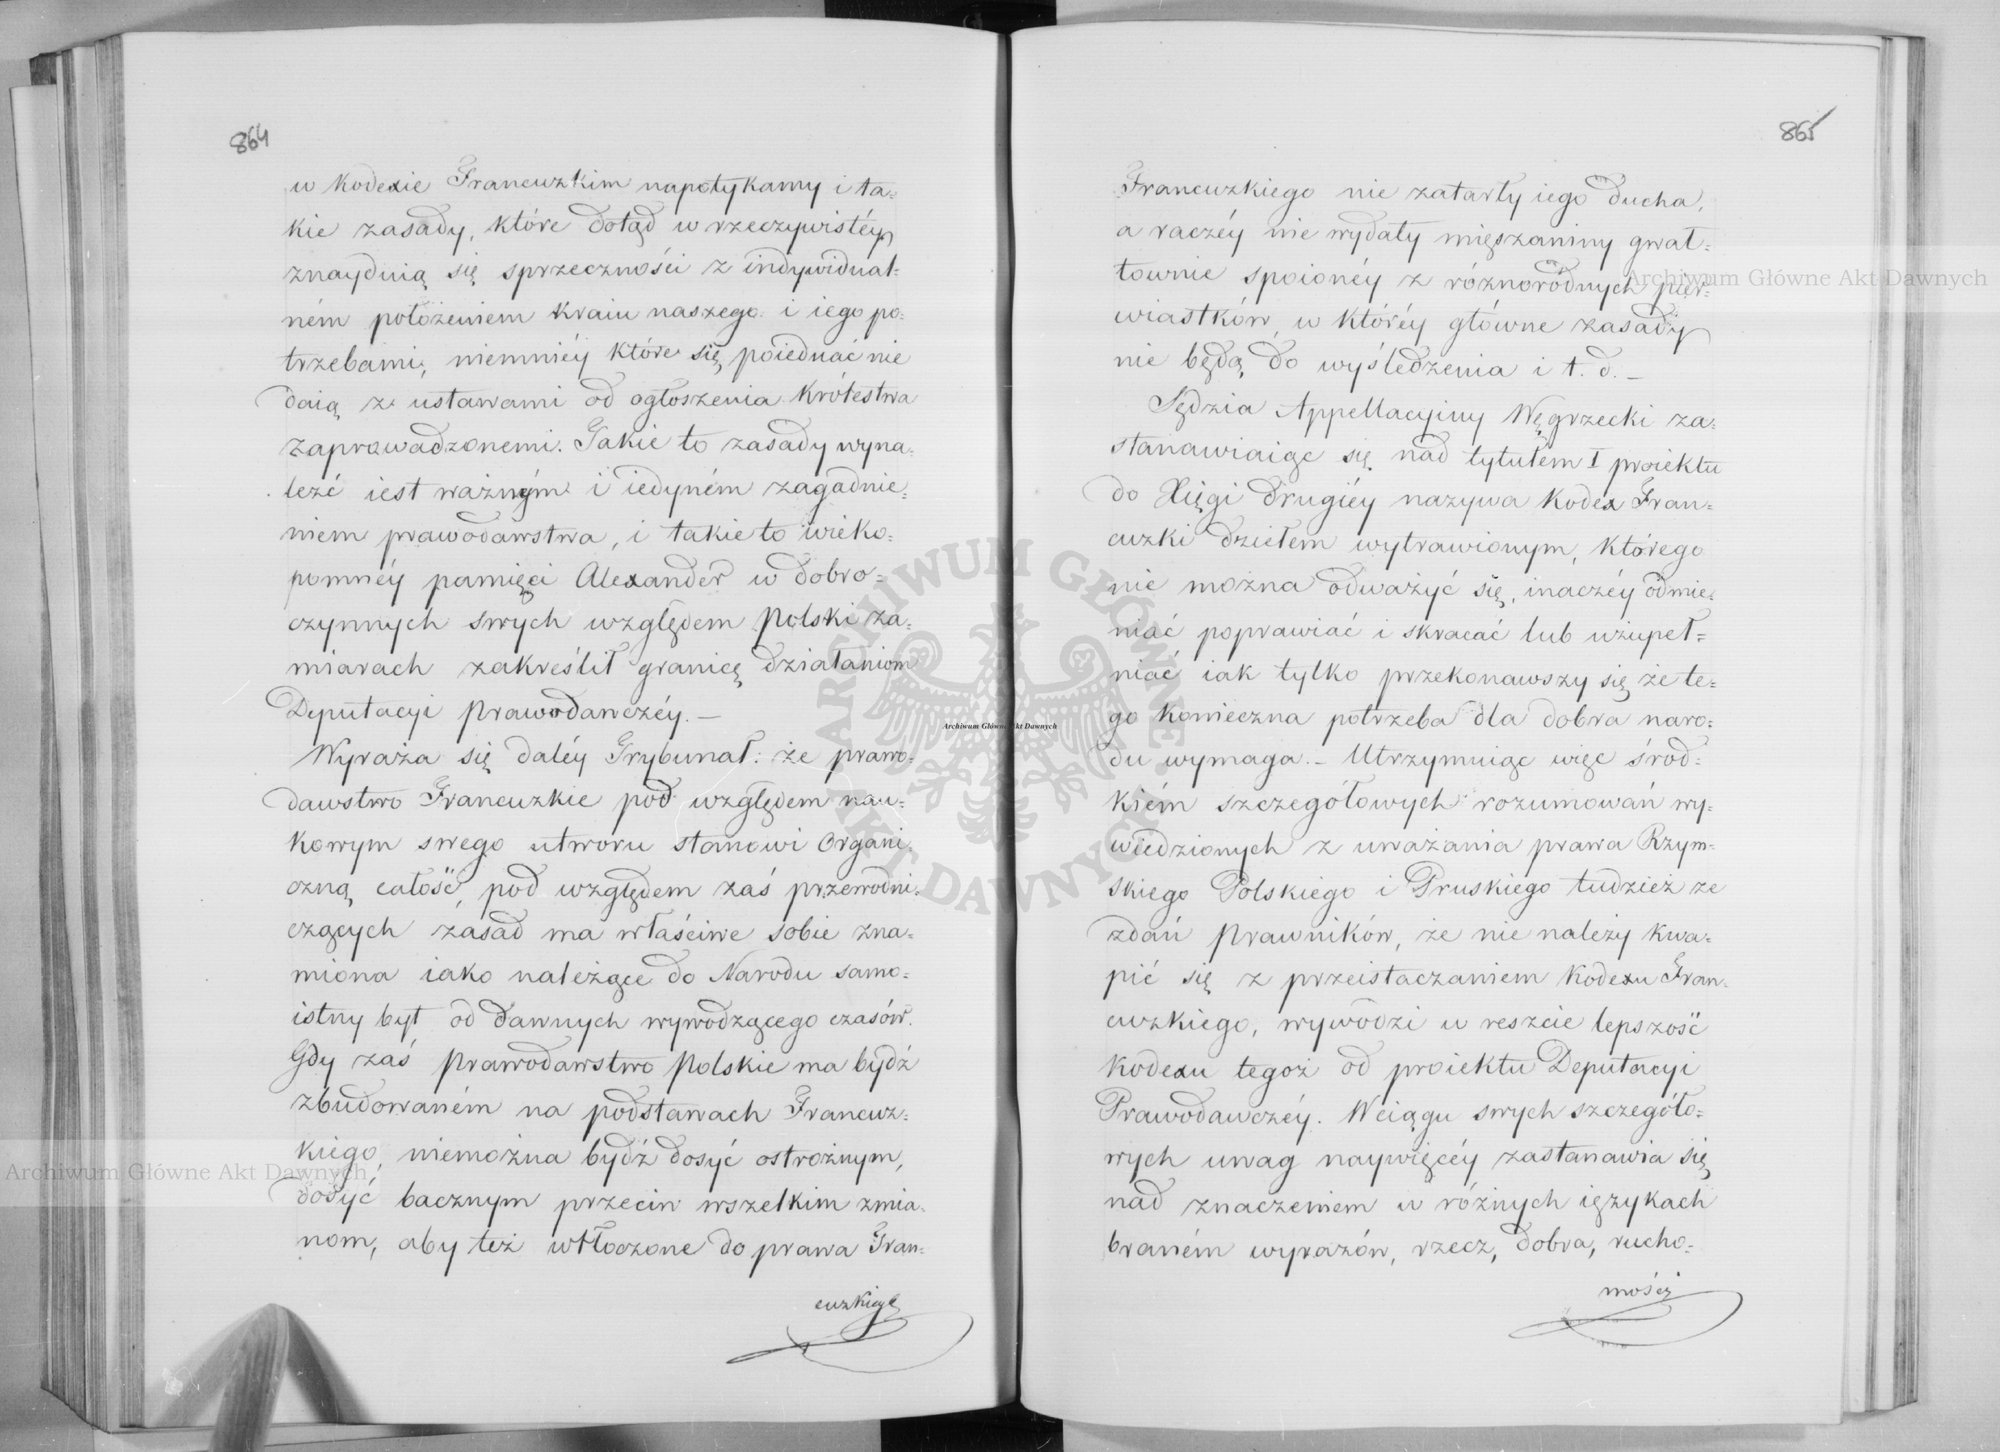 864
w Kodexie Francuzkim napotykamy i ta=
kie zasady, które dotąd w rzeczywistéy
znayduią się sprzeczności z indywidual=
ném położeniem kraiu naszego i iego po=
trzebami, niemniéy które się poiednać nie
daią z ustawami od ogłoszenia Królestwa
zaprowadzonemi. Takie to zasady wyna=
leźć iest ważným i iedyném zagadnie=
niem prawodawstwa, i takie to wieko=
pomnéy pamięci Alexander w dobro=
czynnych swych względem Polski za=
miarach zakreślił granicę działaniom
Deputacyi Prawodawczéy. —
Wyraża się daléy Trybunał: że prawo=
dawstwo Francuzkie pod względem nau=
kowym swego utworu stanowi organi=
czną całość, pod względem zaś przewodni=
czących zasad ma właściwe sobie zna=
miona iako należące do Narodu samo=
istny byt od dawnych wywodzącego czasów.
Gdy zaś Prawodawstwo Polskie ma bydź
zbudowaném na podstawach Francuz=
kiego, niemożna bydź dosyć ostrożnym,
dosyć bacznym przeciw wszelkim zmia=
nom, aby też wtłoczone do prawa Fran=
cuzkiego
865
Francuzkiego nie zatarły iego ducha,
a raczéy nie wydały mięszaniny gwał=
townie spoionéy z różnorodnych pier=
wiastków, w któréy główne zasady
nie będą do wyśledzenia i t. d. —
Sędzia Appellacyiny Węgrzecki za=
stanawiaiąc się nad tytułem I proiektu
do Xięgi drugiéy nazywa Kodex Fran=
cuzki dziełem wytrawionym, którego
nie można odważyć się, inaczéy odmie=
niać poprawiać i skracać lub uzupeł=
niać iak tylko przekonawszy się że te=
go konieczna potrzeba dla dobra naro=
du wymaga. — Utrzymuiąc więc środ=
kiém szczegółowych rozumowań wy=
wiedzionych z uważania prawa Rzym=
skiego Polskiego i Pruskiego tudzież ze
zdań Prawników, że nie należy kwa=
pić się z przeistaczaniem Kodexu Fran=
cuzkiego, wywodzi w reszcie lepszość
kodexu tegoż od proiektu Deputacyi
Prawodawczéy. W ciągu swych szczegóło=
wych uwag naywięcéy zastanawia się
nad znaczeniem w różnych ięzykach
braném wyrazów, rzecz, dobra, rucho=
mości
Archiwum Główne Akt Dawnych
Archiwum Główne Akt Dawnych
Archiwum Główne Akt Dawnych
ARCHIWUM GŁÓWNE AKT DAWNYCH